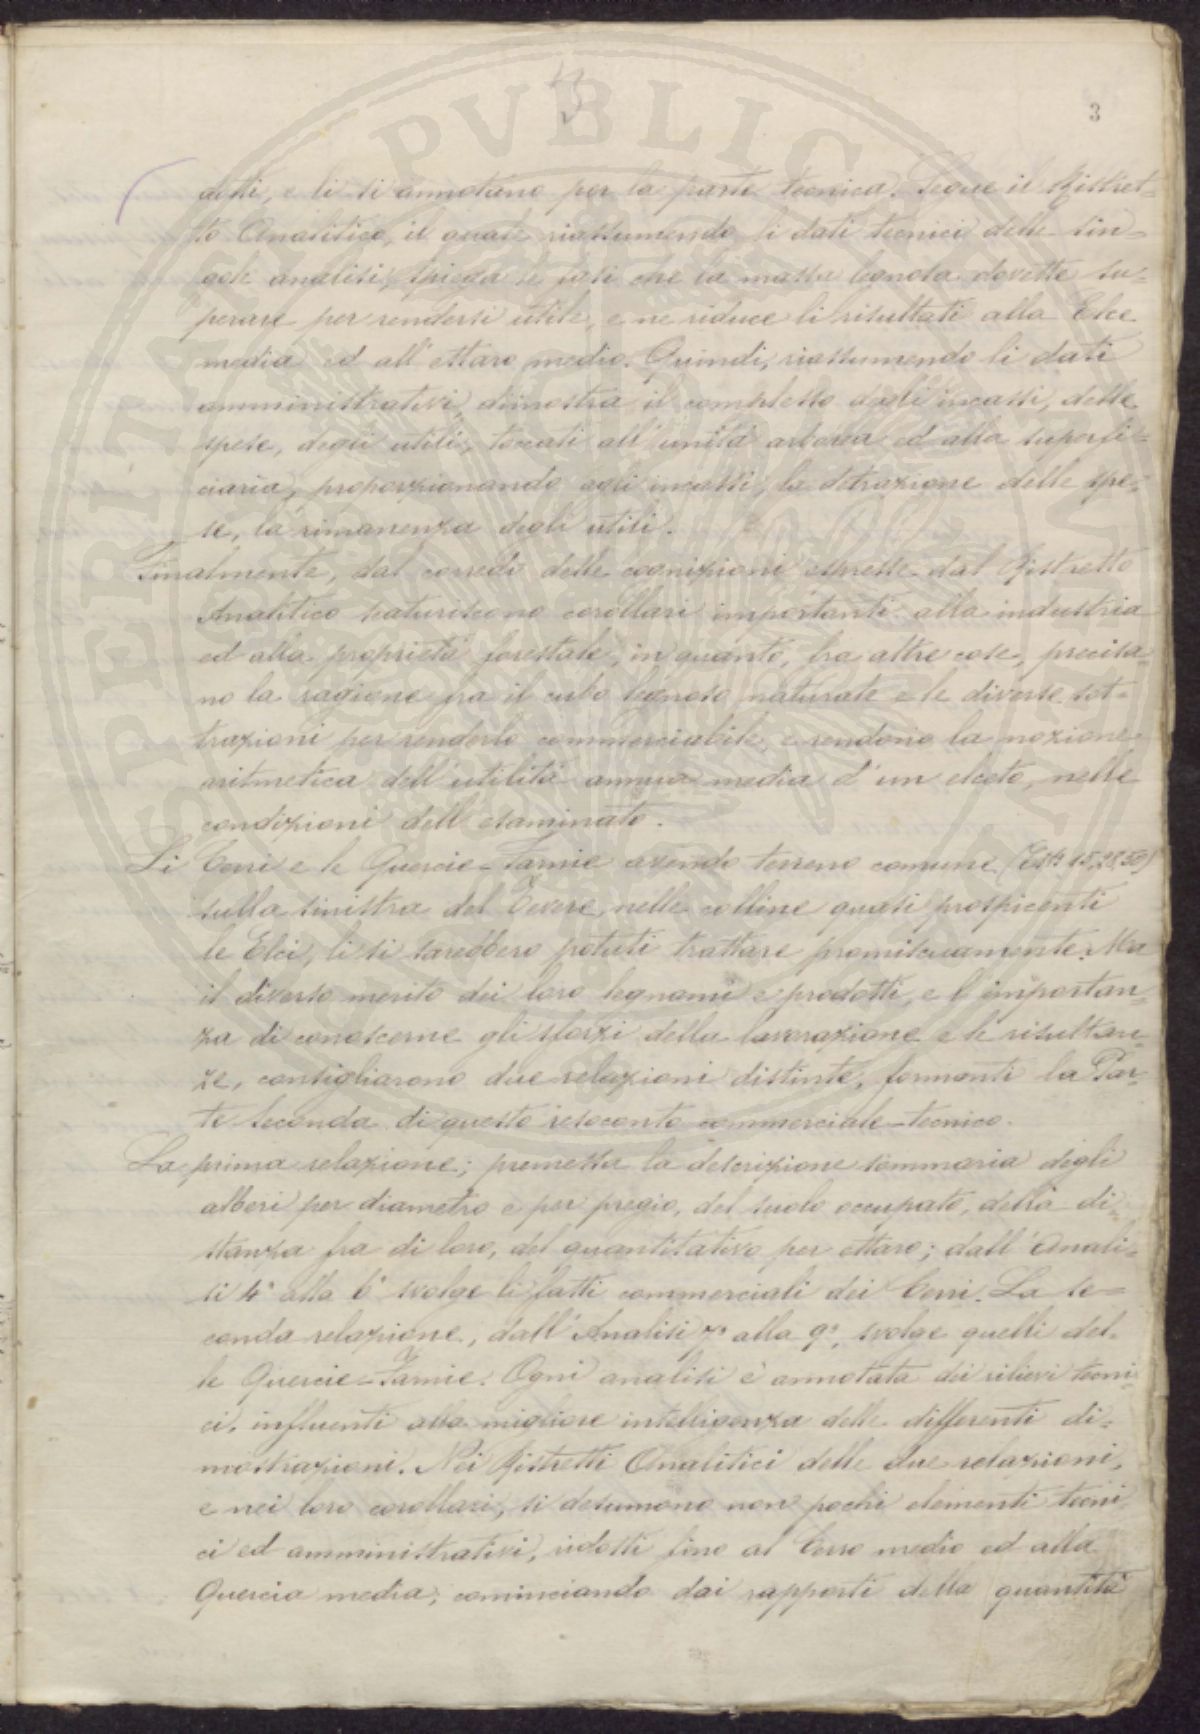 3
dotti, e li si annotano per la parte tecnica. Segue il Ristret-
to Analitico, il quale riassumendo li dati tecnici delle sin=
gole analisi, spiega le fasi che la massa legnosa dovette su=
perare per rendersi utile, e ne riduce li risultati alla Elce
media ed all'ettaro medio. Quindi, riassumendo li dati
amministrativi, dimostra il complesso degli incassi, delle
spese, degli utili, toccati all'unità arborea ed alla superfi=
ciaria, proporzionando agli incassi, la detrazione delle spe=
se, la rimanenza degli utili.
Finalmente, dal corredo delle cognizioni espresse dal Ristretto
Analitico scaturiscono corollari importanti alla industria
ed alla proprietà forestale, in quanto, fra altre cose, precisa=
no la ragione fra il cubo legnoso naturale e le diverse sot=
trazioni per renderlo commerciabile, e rendono la nozione
aritmetica dell'utilità annua media d'un elceto, nelle
condizioni dell'esaminato.
Li Cerri e le Quercie=Farnie avendo terreno comune (Est.ª 15,28,50)
sulla sinistra del Tevere, nelle colline quasi prospicenti
le Elci, li si sarebbero potuti trattare promiscuamente. Ma
il diverso merito dei loro legnami e prodotti, e l'importan=
za di conoscerne gli sforzi della lavorazione e le risultan=
ze, consigliarono due relazioni distinte, formanti la Par=
te Seconda di questo resoconto commerciale=tecnico.
La prima relazione; premessa la descrizione sommaria degli
alberi per diametro e per pregio, del suolo occupato, della di=
stanza fra di loro, del quantitativo per ettaro; dall'Anali=
si 4ª alla 6ª svolge li fatti commerciali dei Cerri. La se=
conda relazione, dall'Analisi 7ª alla 9ª, svolge quelli del=
le Quercie=Farnie. Ogni analisi è annotata dei rilievi tecni=
ci, influenti alla migliore intelligenza delle differenti di=
mostrazioni. Nei Ristretti Analitici delle due relazioni,
e nei loro corollari, si desumono non pochi elementi tecni
ci ed amministrativi, ridotti fino al Cerro medio ed alla
Quercia media; cominciando dai rapporti della quantità